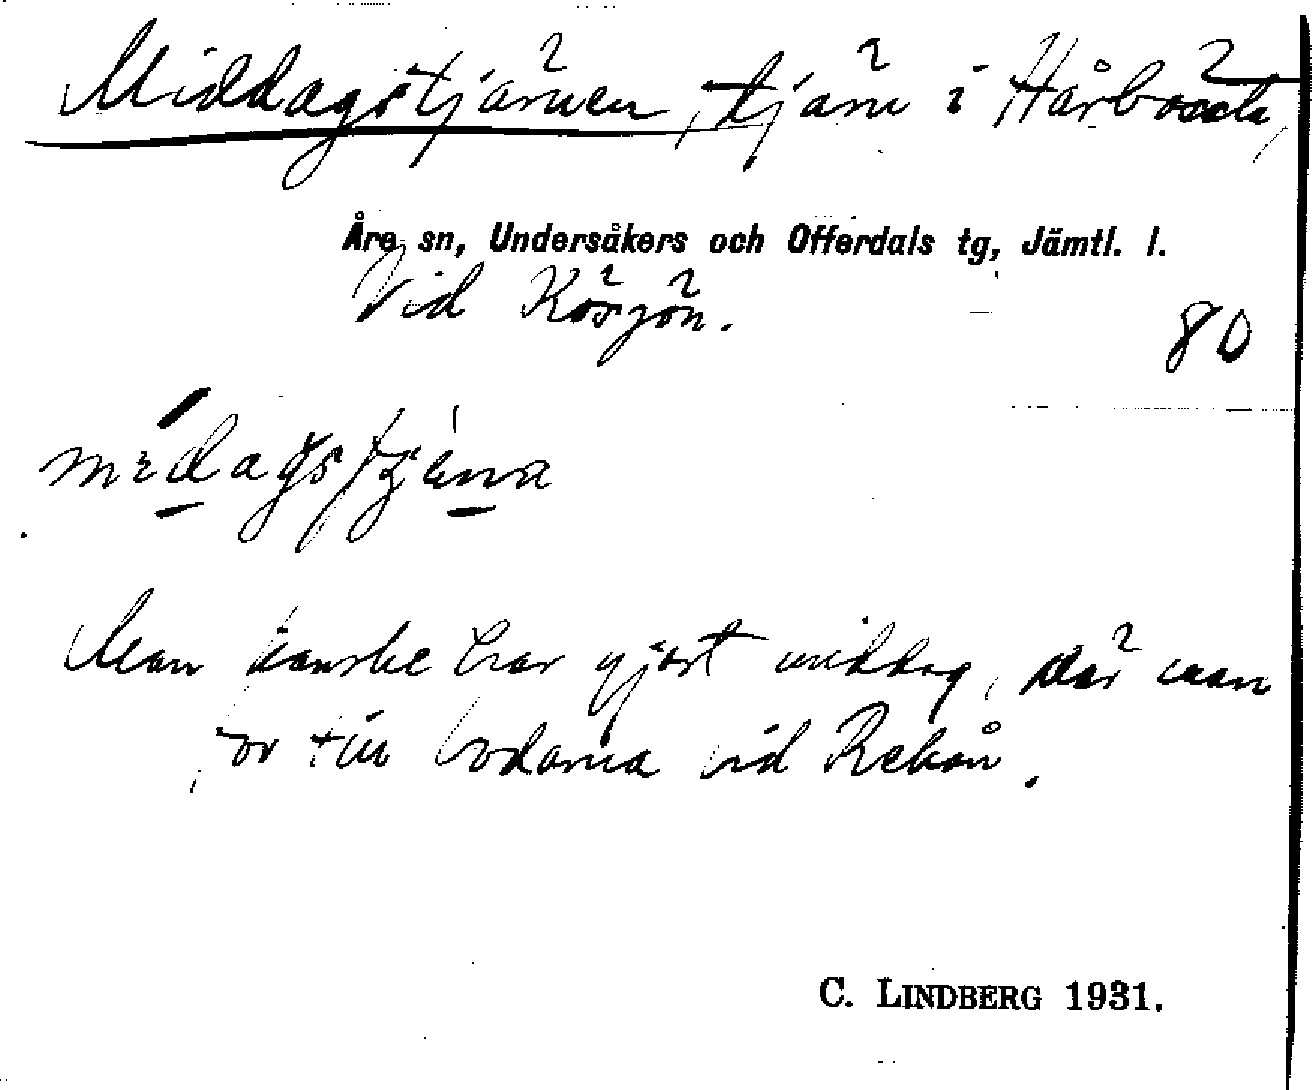 Middagstjärnen, tjärn i Hårbörsta,
Åre sn, Undersåkers och Offerdals tg, Jämtl. l.
Vid Kösjön.
80
Man kanske har gjort middag, där man
for till bodarna vid Rekån.
C. LINDBERG 1931.